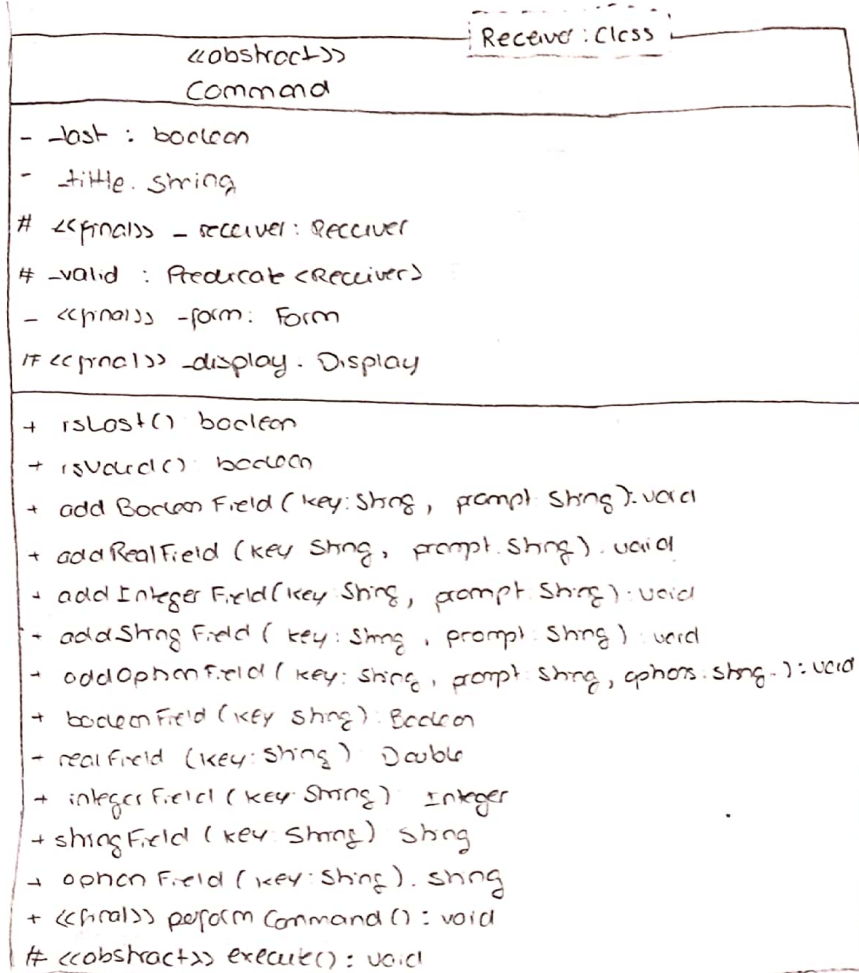 Receiver : Class
<<abstract>>
Command
- _last : boolean
- _title : String
# <<final>> _receiver : Receiver
# _valid : Predicate <Receiver>
- <<final>> _form : Form
# <<final>> _display : Display
+ isLast() boolean
+ isValid() boolean
+ addBooleanField (key: String, prompt String): void
+ addRealField (key String, prompt. String) . void
+ addIntegerField (key String, prompt String) : void
+ addStringField ( key : String , prompt : String ) : void
+ addOptionField ( key: String, prompt: String, options: String.. ) : void
+ booleanField (key String) : Boolean
+ realField (key: String) Double
+ integerField (key String) Integer
+ stringField ( key String) String
+ optionField ( key: String). String
+ <<final>> performCommand () : void
# <<abstract>> execute() : void